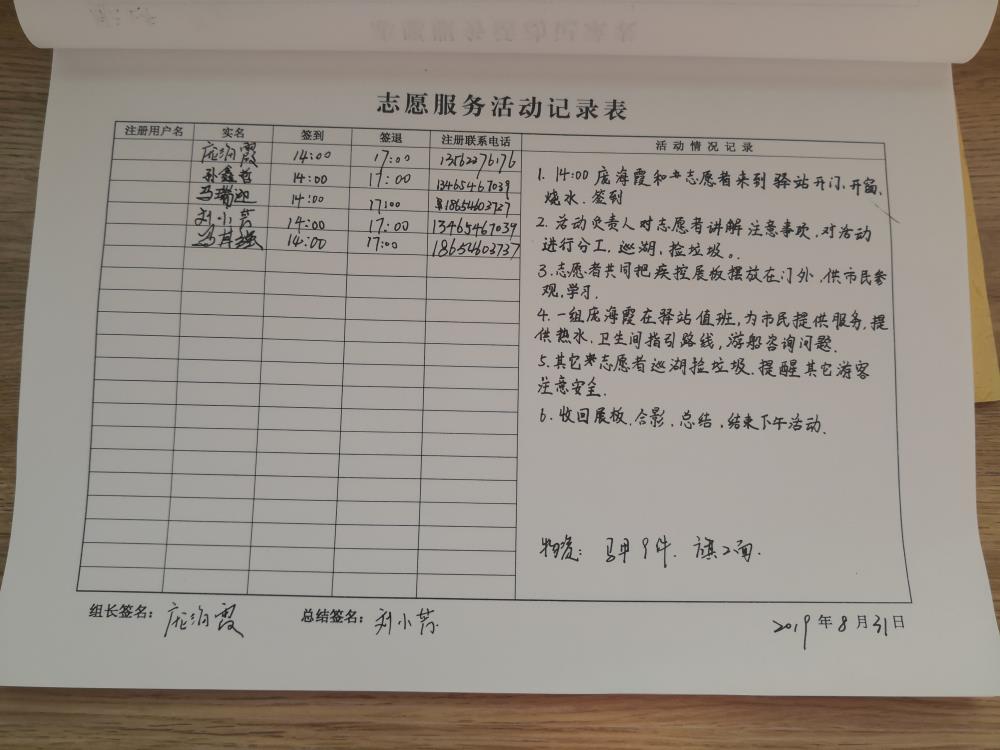 志愿服务活动记录表
注册用户名 实名 签到 签退 注册联系电话 活动情况记录
庞海霞 14:00 17:00 13562276176
孙鑫哲 14:00 17:00 13465467039
马瑞迎 14:00 17:00 18654603727
刘小芳 14:00 17:00 13465467039
14:00 17:00 18654603737
1. 14:00 庞海霞和志愿者来到驿站开门.开窗.
烧水.签到
2. 活动负责人对志愿者讲解注意事项,对活动
进行分工,巡湖,捡垃圾。.
3.志愿者共同把疾控展板摆放在门外,供市民参
观,学习.
4.一组庞海霞在驿站值班,为市民提供服务,提
供热水.卫生间指引路线,游船咨询问题.
5.其它志愿者巡湖捡垃圾.提醒其它游客
注意安全.
6.收回展板.合影.总结,结束下午活动.
物资: 马甲9件. 旗2面.
组长签名: 庞海霞 总结签名: 刘小芳
2019年8月31日